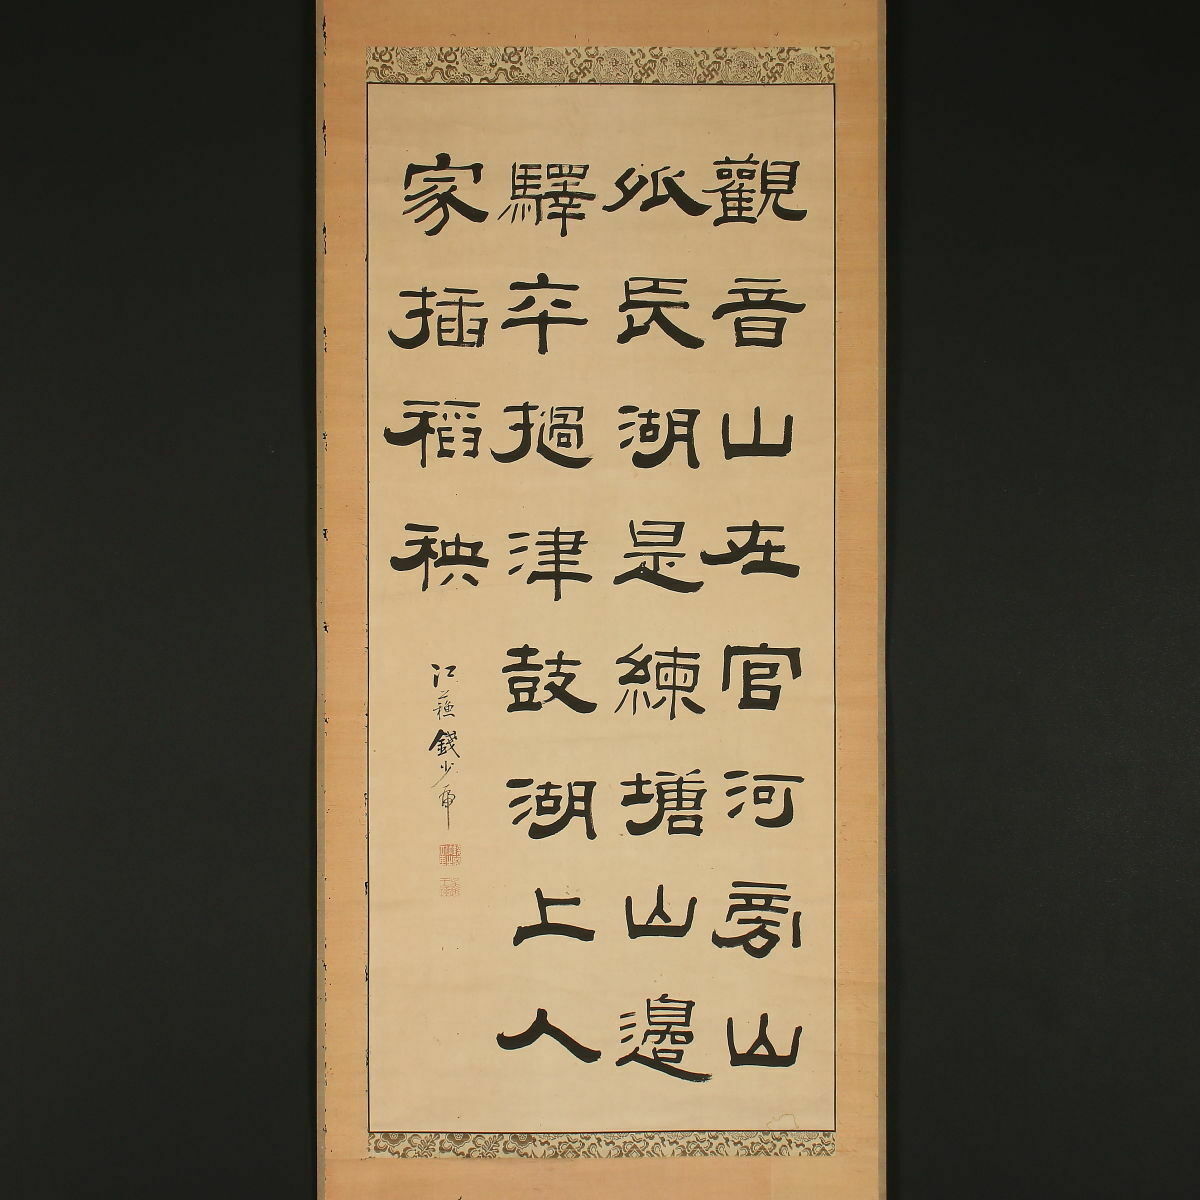 觀音山在官河旁山
長湖是練塘山邊
驛卒撾津鼓湖上人
家插稻秧
江蘇錢少虎